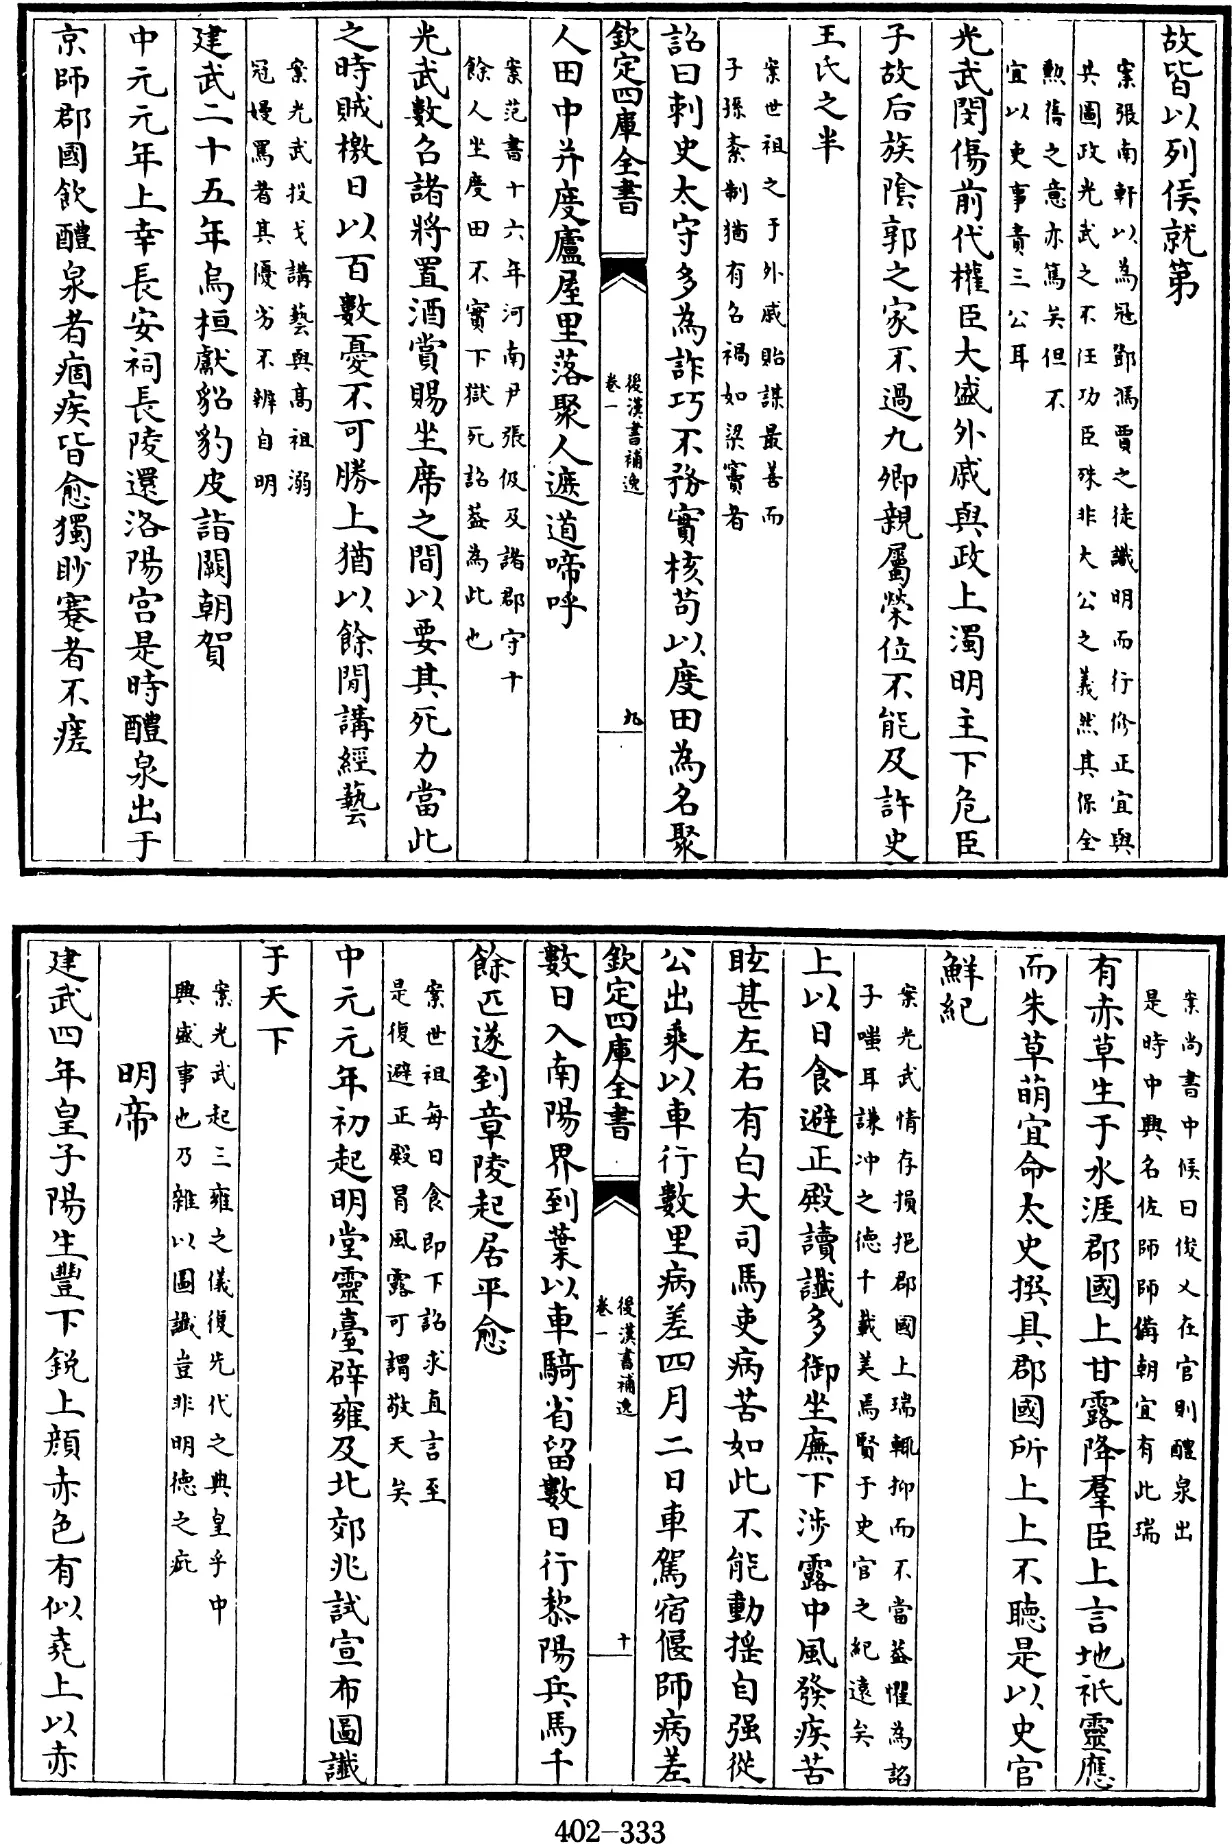 故皆以列侯就第
案張南軒以為冠鄧馮賈之徒識明而行修正宜與
共圖政光武之不任功臣殊非大公之義然其保全
勲舊之意亦篤矣但不
宜以吏事責三公耳
光武閔傷前代權臣大盛外戚與政上濁明主下危臣
子故后族陰郭之家不過九卿親屬榮位不能及許史
王氏之半
案世祖之于外戚貽謀最善而
子孫紊制猶有名禍如梁竇者
詔曰刺史太守多為詐巧不務實核苟以度田為名聚
欽定四庫全書
後漢書補逸
卷一
九
人田中并度廬屋里落聚人遮道啼呼
案范書十六年河南尹張伋及諸郡守十
餘人坐度田不實下獄死詔葢為此也
光武數召諸將置酒賞賜坐席之間以要其死力當此
之時賊檄日以百數憂不可勝上猶以餘閒講經藝
案光武投戈講藝與高祖溺
冠嫚罵者其優劣不辨自明
建武二十五年烏桓獻貂豹皮詣闕朝賀
中元元年上幸長安祠長陵還洛陽宮是時醴泉出于
京師郡國飲醴泉者痼疾皆愈獨眇蹇者不瘥
案尚書中候曰俊乂在官則醴泉出
是時中興名佐師師備朝宜有此瑞
有赤草生于水涯郡國上甘露降羣臣上言地祇靈應
而朱草萌宜命太史撰具郡國所上上不聽是以史官
鮮紀
案光武情存損挹郡國上瑞輒抑而不當葢懼為諂
子嗤耳謙冲之德千載美焉賢于史官之紀遠矣
上以日食避正殿讀讖多御坐廡下涉露中風發疾苦
眩甚左右有白大司馬吏病苦如此不能動搖自强從
公出乘以車行數里病差四月二日車駕宿偃師病差
欽定四庫全書
後漢書補逸
卷一
十
數日入南陽界到葉以車騎省留數日行黎陽兵馬千
餘匹遂到章陵起居平愈
案世祖每日食即下詔求直言至
是復避正殿冒風露可謂敬天矣
中元元年初起明堂靈臺辟雍及北郊兆試宣布圖讖
于天下
案光武起三雍之儀復先代之典皇乎中
興盛事也乃雜以圖讖豈非明德之疵
明帝
建武四年皇子陽生豐下銳上顏赤色有似堯上以赤
402-333